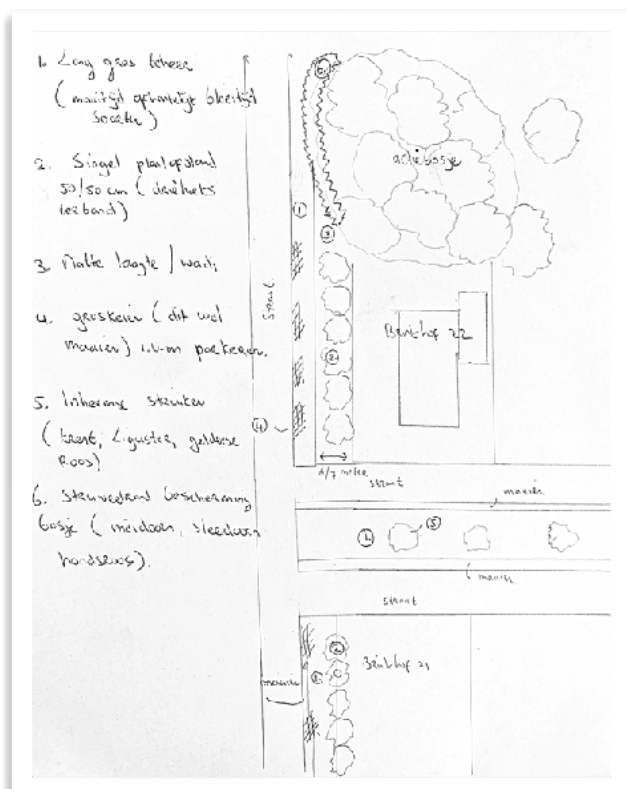 1. Lang gras beheer
(maaitijd afhankelijk bloeitijd
soorten)
2. Singel plantafstand
50/50 cm (driehoeks
verband)
3. Natte laagte / wadi
4. graskeien (dit wel
maaien) i.v.m parkeren.
5. Inheemse struiken
(krent, Liguster, gelderse
Roos)
6. Struweelrand bescherming
bosje (meidoorn, sleedoorn
hondsroos).
6.
actiebosje
1
3
Straat
Brinkhof 22
2.
4
6/7 meter
straat
maaien
1.
5
maaien
straat
2
Brinkhof 21
1.